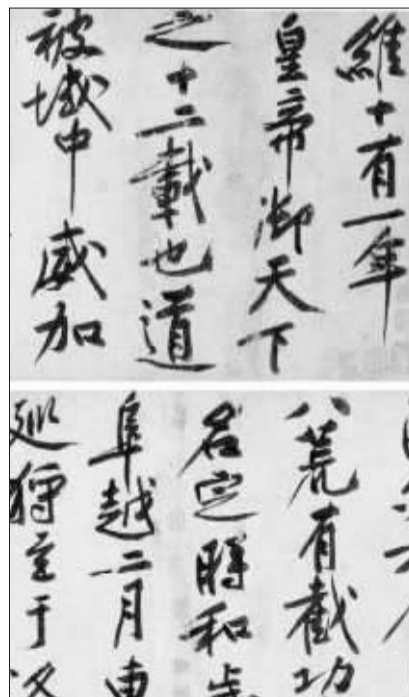 維十有一年
皇帝御天下
之十二載也道
被域中威加
八荒有截功
名定時和歲
阜越二月東
巡狩至于